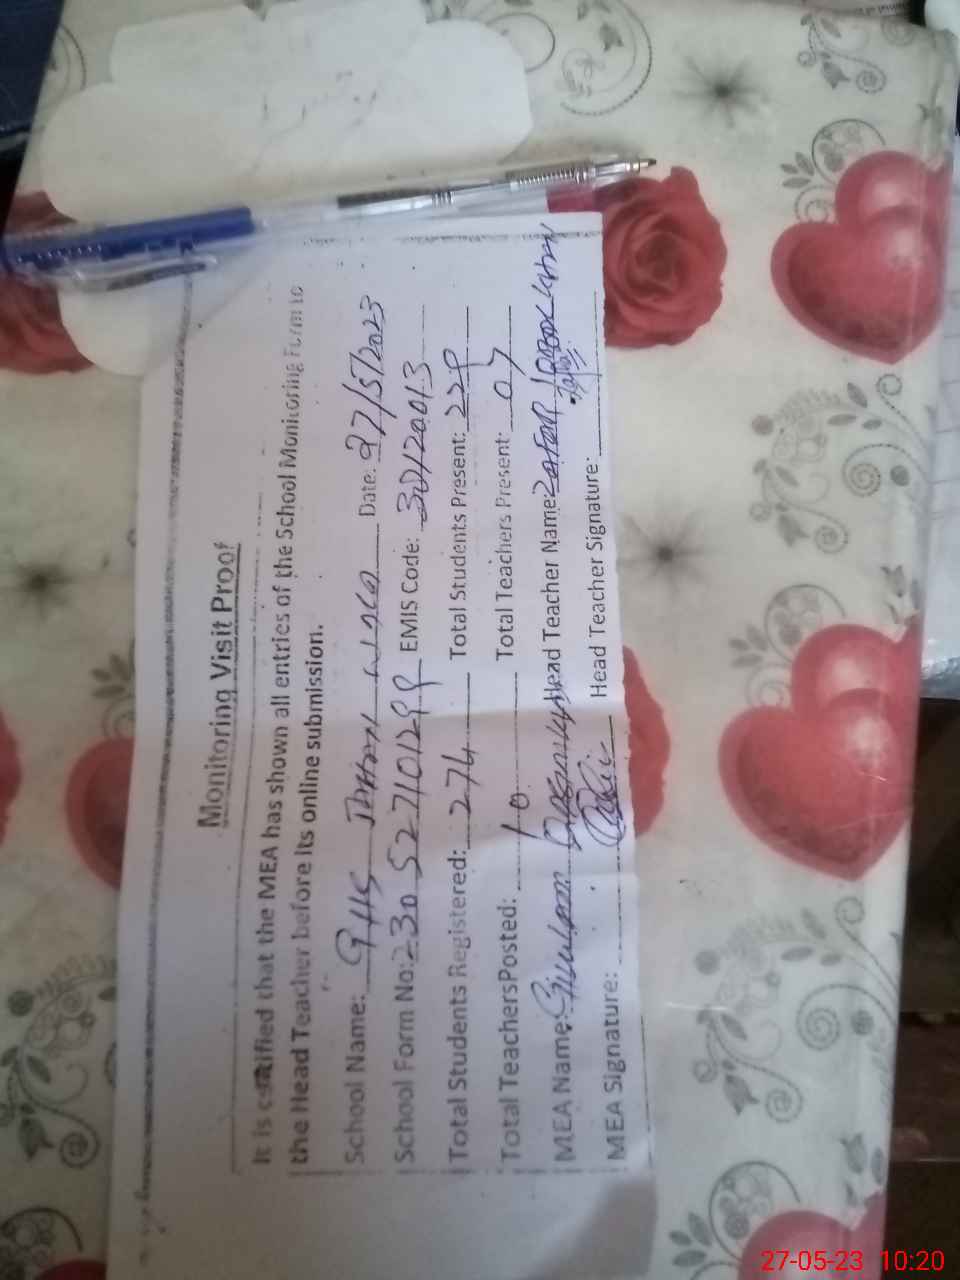 Monitoring Visit Proof
It is certified that the MEA has shown all entries of the School Monitoring Form to
the Head Teacher before its online submission.
School Name: GHS Date: 27/5/2023
School Form No: 230527101299 EMIS Code: 30120013
Total Students Registered: 274 Total Students Present: 229
Total TeachersPosted: 10 Total Teachers Present: 07
MEA Name: Ghulam Head Teacher Name: Zafar Iqbal
MEA Signature: Head Teacher Signature:
27-05-23 10:20